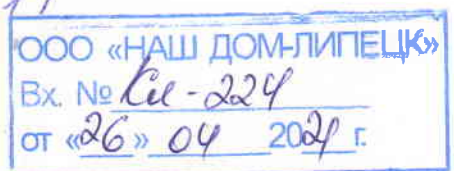 ООО «НАШ ДОМ-ЛИПЕЦК»
Вх. № Кл-224
от «26» 04 2021 г.